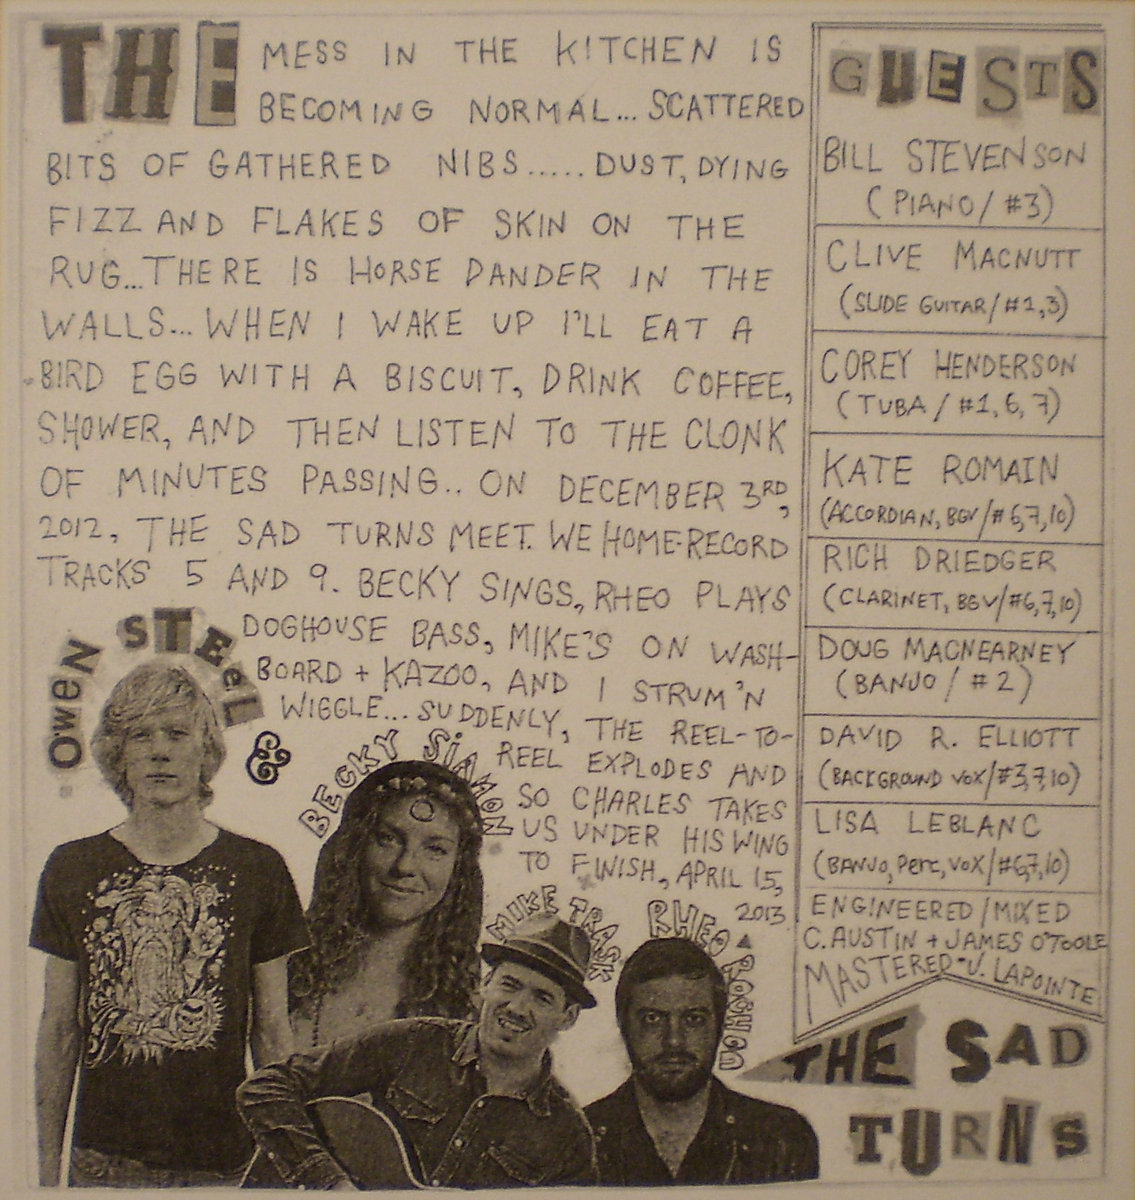 THE MESS IN THE KITCHEN IS
BECOMING NORMAL... SCATTERED
BITS OF GATHERED NIBS..... DUST, DYING
FIZZ AND FLAKES OF SKIN ON THE
RUG...THERE IS HORSE DANDER IN THE
WALLS... WHEN I WAKE UP I'LL EAT A
BIRD EGG WITH A BISCUIT, DRINK COFFEE,
SHOWER, AND THEN LISTEN TO THE CLONK
OF MINUTES PASSING.. ON DECEMBER 3RD,
2012, THE SAD TURNS MEET. WE HOME-RECORD
TRACKS 5 AND 9. BECKY SINGS, RHEO PLAYS
DOGHOUSE BASS, MIKE'S ON WASH-
BOARD + KAZOO, AND I STRUM 'N
WIGGLE... SUDDENLY, THE REEL-TO-
REEL EXPLODES AND
SO CHARLES TAKES
US UNDER HIS WING
TO FINISH, APRIL 15,
2013
OWEN STEEL
&
BECKY SIAMON
MIKE TRASK
RHEO ROCHON
GUESTS
BILL STEVENSON
(PIANO/#3)
CLIVE MACNUTT
(SLIDE GUITAR/#1,3)
COREY HENDERSON
(TUBA/#1,6,7)
KATE ROMAIN
(ACCORDIAN, BGV/#6,7,10)
RICH DRIEDGER
(CLARINET, BGV/#6,7,10)
DOUG MACNEARNEY
(BANJO/#2)
DAVID R. ELLIOTT
(BACKGROUND VOX/#3,7,10)
LISA LEBLANC
(BANJO, PERC, VOX/#6,7,10)
ENGINEERED/MIXED
C. AUSTIN + JAMES O'TOOLE
MASTERED-J. LAPOINTE
THE SAD
TURNS